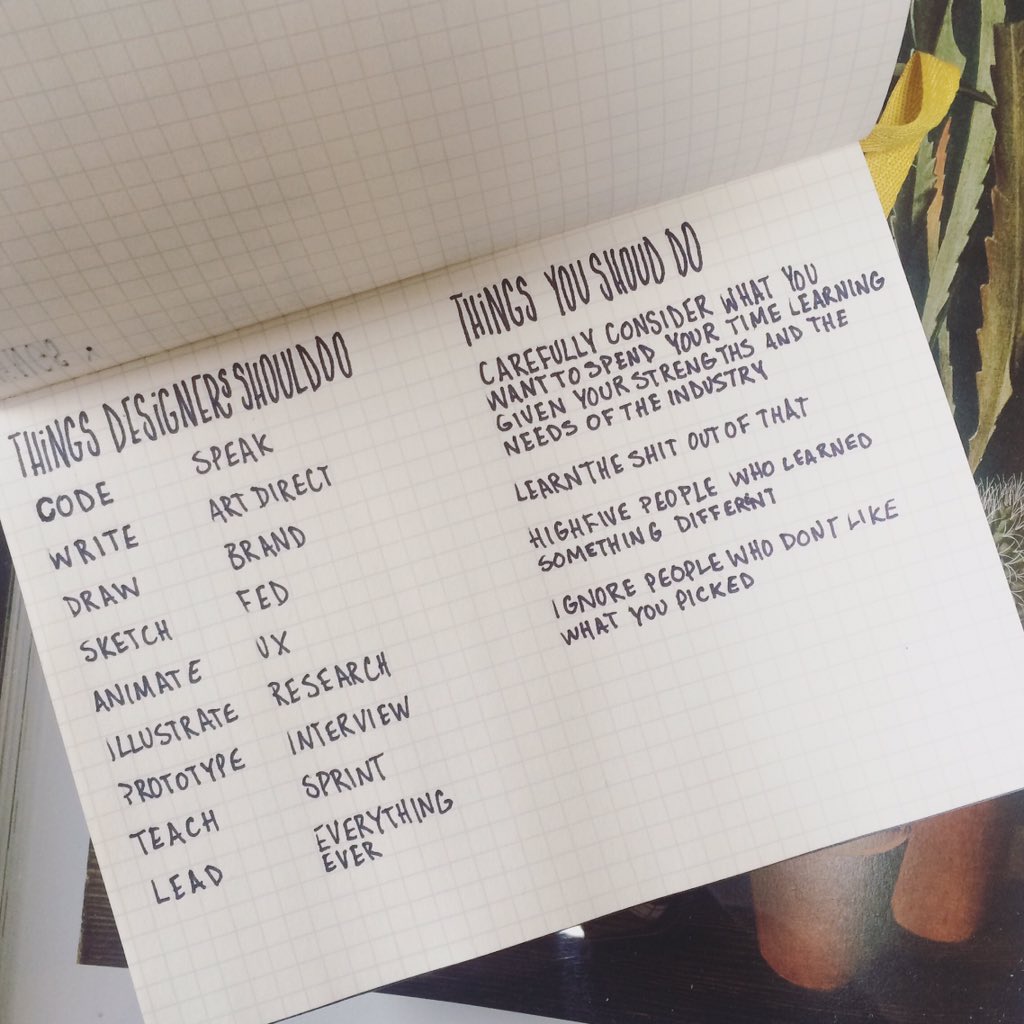 THINGS DESIGNERS SHOULD DO
CODE
WRITE
DRAW
SKETCH
ANIMATE
ILLUSTRATE
PROTOTYPE
TEACH
LEAD
SPEAK
ART DIRECT
BRAND
FED
UX
RESEARCH
INTERVIEW
SPRINT
EVERYTHING
EVER
THINGS YOU SHOUD DO
CAREFULLY CONSIDER WHAT YOU
WANT TO SPEND YOUR TIME LEARNING
GIVEN YOUR STRENGTHS AND THE
NEEDS OF THE INDUSTRY
LEARN THE SHIT OUT OF THAT
HIGHFIVE PEOPLE WHO LEARNED
SOMETHING DIFFERENT
IGNORE PEOPLE WHO DONT LIKE
WHAT YOU PICKED